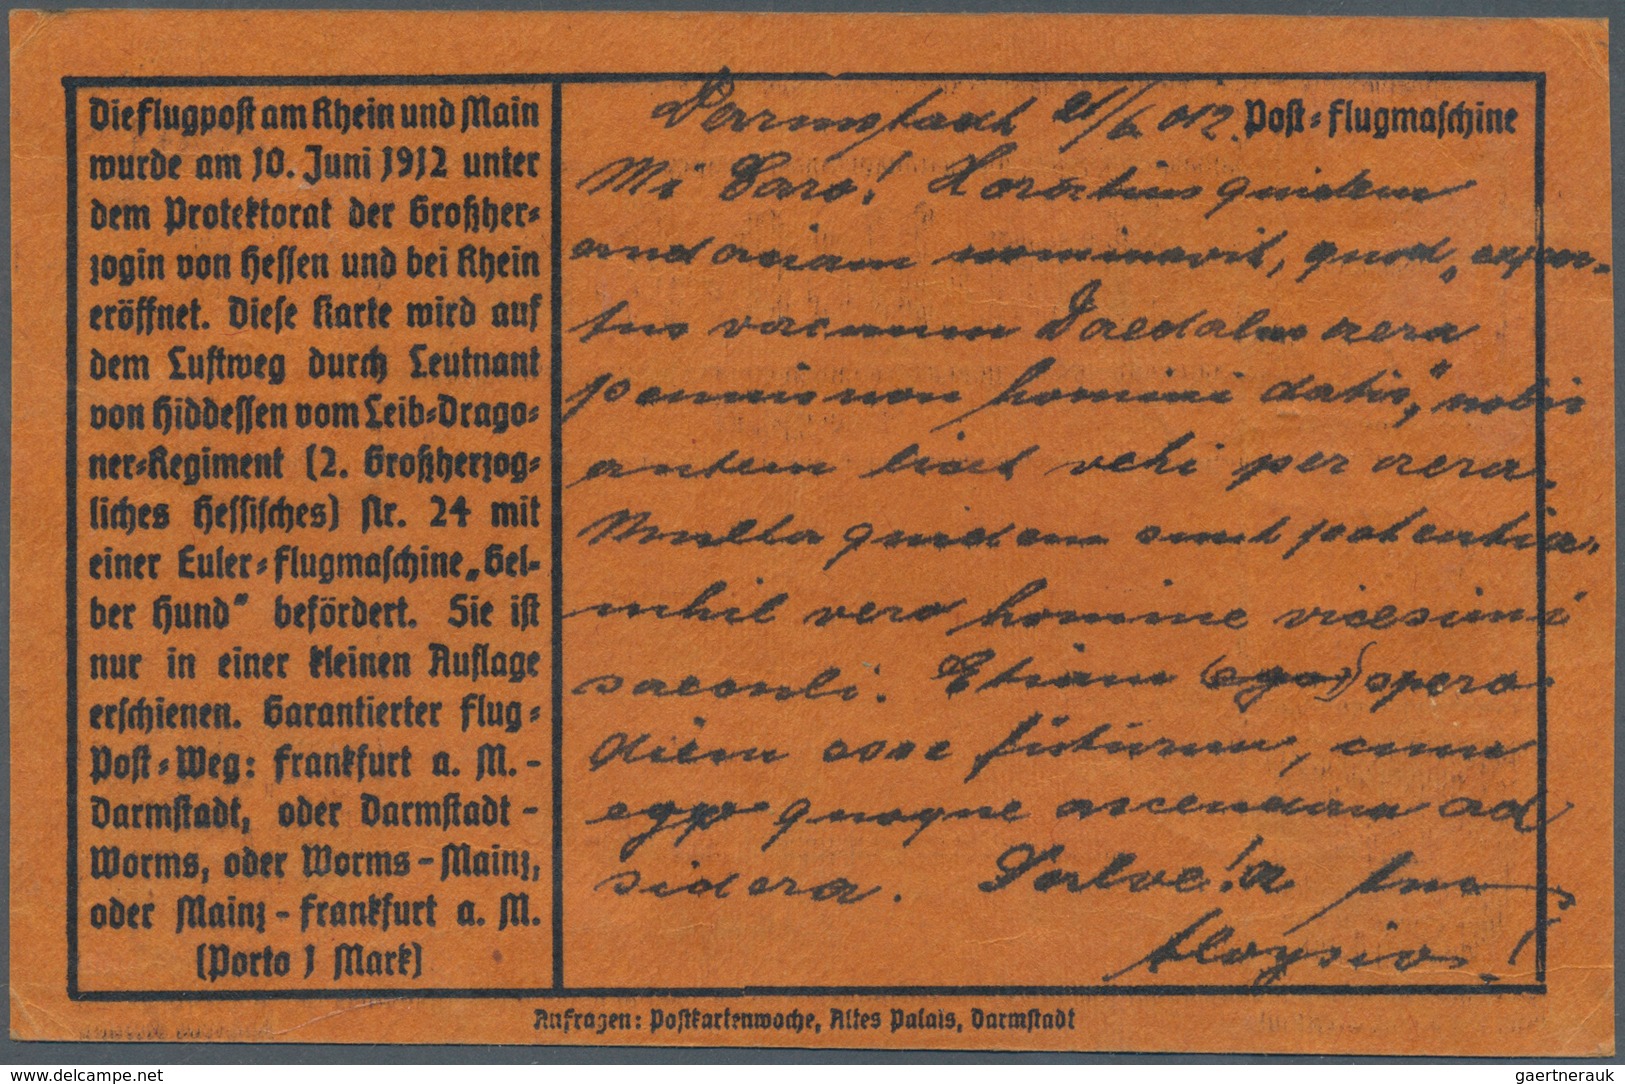 Die Flugpost am Rhein und Main
wurde am 10. Juni 1912 unter
dem Protektorat der Großher-
zogin von Hessen und bei Rhein
eröffnet. Diese Karte wird auf
dem Luftweg durch Leutnant
von Hiddessen vom Leib-Drago-
ner-Regiment (2. Großherzog-
liches Hessisches) Nr. 24 mit
einer Euler-Flugmaschine „Gel-
ber Hund" befördert. Sie ist
nur in einer kleinen Auflage
erschienen. Garantierter Flug-
Post-Weg: Frankfurt a. M. -
Darmstadt, oder Darmstadt -
Worms, oder Worms - Mainz,
oder Mainz - Frankfurt a. M.
(Porto 1 Mark)
Post-Flugmaschine
Darmstadt 21/6 012.
Mi Care! Horatius quidem
audaciam nominavit, quod „exper-
tus vacuum Daedalus aera
pennis non homini datis", nobis
autem licet vehi per aera.
Multa quidem sunt potentia,
nihil vero homine vicesimi
saeculi. Etiam (ego) spero
diem esse futurum, cum
ego quoque ascendam ad
sidera. Salve! a tuo
Aloysio!
Anfragen: Postkartenwoche, Altes Palais, Darmstadt
www.delcampe.net
gaertnerauk